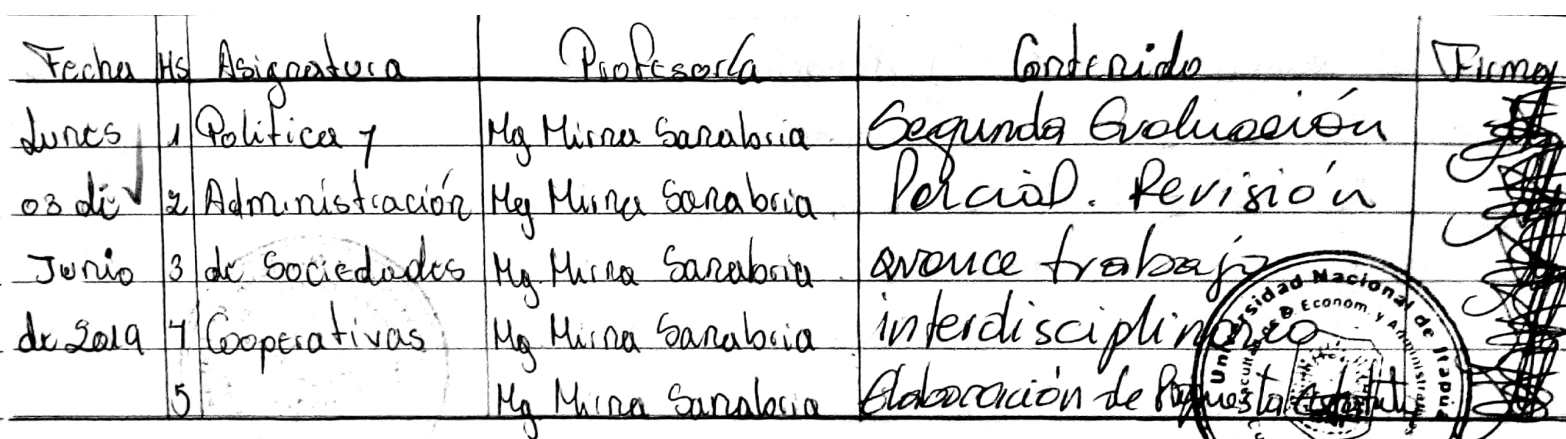 Fecha Hs Asignatura Profesor/a Contenido Firma
Lunes 1 Política y Mg Mirna Sanabria Segunda Evaluación
03 de 2 Administración Mg Mirna Sanabria Parcial. Revisión
Junio 3 de Sociedades Mg Mirna Sanabria avance trabajo
de 2019 4 Cooperativas Mg Mirna Sanabria interdisciplinario
5 Mg Mirna Sanabria Elaboración de
Universidad Nacional de Itapúa